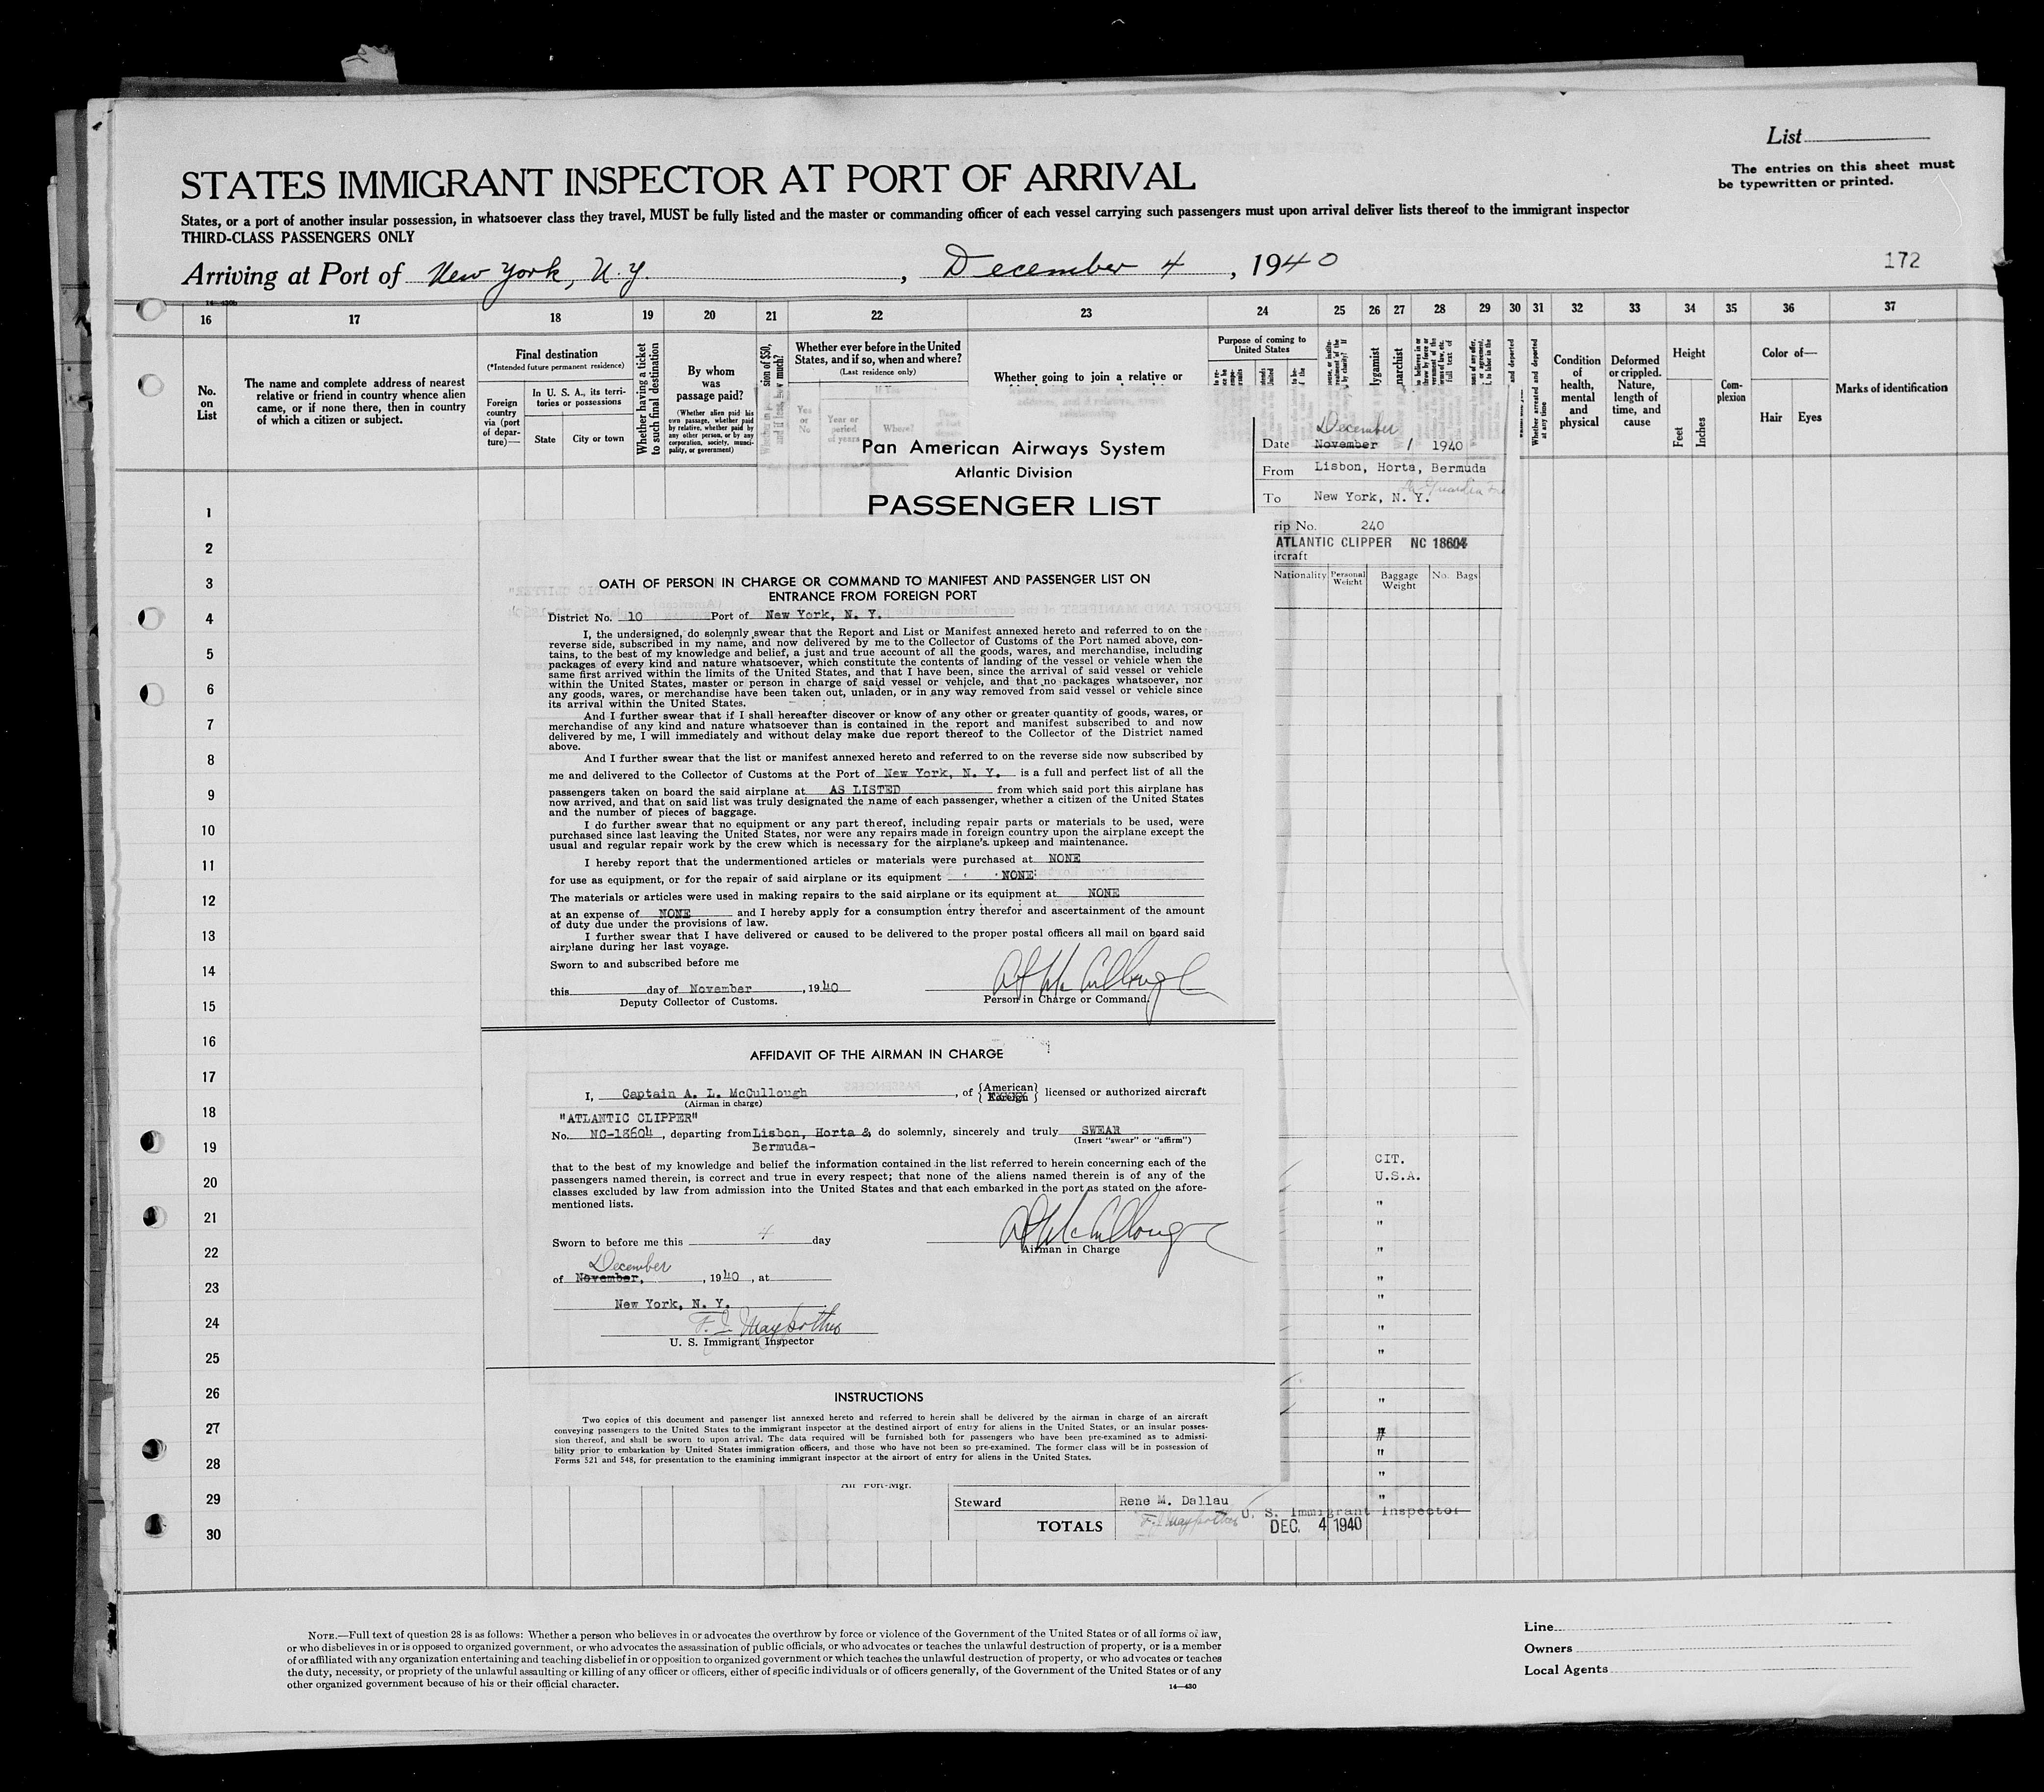 List
The entries on this sheet must
be typewritten or printed.
STATES IMMIGRANT INSPECTOR AT PORT OF ARRIVAL
States, or a port of another insular possession, in whatsoever class they travel, MUST be fully listed and the master or commanding officer of each vessel carrying such passengers must upon arrival deliver lists thereof to the immigrant inspector
THIRD-CLASS PASSENGERS ONLY
Arriving at Port of New York, N.Y. , December 4 , 1940
172
16 17 18 19 20 21 22 23 24 25 26 27 28 29 30 31 32 33 34 35 36 37
No.
on
List
The name and complete address of nearest
relative or friend in country whence alien
came, or if none there, then in country
of which a citizen or subject.
Final destination
(*Intended future permanent residence)
Foreign
country
via (port
of depar-
ture)—
In U. S. A., its terri-
tories or possessions
State
City or town
Whether having a ticket
to such final destination
By whom
was
passage paid?
(Whether alien paid his
own passage, whether paid
by relative, whether paid by
any other person, or by any
corporation, society, munici-
pality, or government)
Whether ever before in the United
States, and if so, when and where?
(Last residence only)
Yes
or
No
Year or
period
of years
Where?
Whether going to join a relative or
Purpose of coming to
United States
Whether arrested and deported
at any time
Condition
of
health,
mental
and
physical
Deformed
or crippled.
Nature,
length of
time, and
cause
Height
Feet
Inches
Com-
plexion
Color of—
Hair
Eyes
Marks of identification
Pan American Airways System
Atlantic Division
PASSENGER LIST
December
Date November 1 1940
From Lisbon, Horta, Bermuda
To New York, N. Y.
rip No. 240
ATLANTIC CLIPPER NC 18604
ircraft
Nationality
Personal
Weight
Baggage
Weight
No. Bags
1
2
3
4
5
6
7
8
9
10
11
12
13
14
15
16
17
18
19
20
21
22
23
24
25
26
27
28
29
30
OATH OF PERSON IN CHARGE OR COMMAND TO MANIFEST AND PASSENGER LIST ON
ENTRANCE FROM FOREIGN PORT
District No. 10 Port of New York, N. Y.
I, the undersigned, do solemnly swear that the Report and List or Manifest annexed hereto and referred to on the
reverse side, subscribed in my name, and now delivered by me to the Collector of Customs of the Port named above, con-
tains, to the best of my knowledge and belief, a just and true account of all the goods, wares, and merchandise, including
packages of every kind and nature whatsoever, which constitute the contents of landing of the vessel or vehicle when the
same first arrived within the limits of the United States, and that I have been, since the arrival of said vessel or vehicle
within the United States, master or person in charge of said vessel or vehicle, and that no packages whatsoever, nor
any goods, wares, or merchandise have been taken out, unladen, or in any way removed from said vessel or vehicle since
its arrival within the United States.
And I further swear that if I shall hereafter discover or know of any other or greater quantity of goods, wares, or
merchandise of any kind and nature whatsoever than is contained in the report and manifest subscribed to and now
delivered by me, I will immediately and without delay make due report thereof to the Collector of the District named
above.
And I further swear that the list or manifest annexed hereto and referred to on the reverse side now subscribed by
me and delivered to the Collector of Customs at the Port of New York, N. Y. is a full and perfect list of all the
passengers taken on board the said airplane at AS LISTED from which said port this airplane has
now arrived, and that on said list was truly designated the name of each passenger, whether a citizen of the United States
and the number of pieces of baggage.
I do further swear that no equipment or any part thereof, including repair parts or materials to be used, were
purchased since last leaving the United States, nor were any repairs made in foreign country upon the airplane except the
usual and regular repair work by the crew which is necessary for the airplane's upkeep and maintenance.
I hereby report that the undermentioned articles or materials were purchased at NONE
for use as equipment, or for the repair of said airplane or its equipment NONE
The materials or articles were used in making repairs to the said airplane or its equipment at NONE
at an expense of NONE and I hereby apply for a consumption entry therefor and ascertainment of the amount
of duty due under the provisions of law.
I further swear that I have delivered or caused to be delivered to the proper postal officers all mail on board said
airplane during her last voyage.
Sworn to and subscribed before me
this day of November , 1940
Deputy Collector of Customs.
A L McCullough
Person in Charge or Command.
AFFIDAVIT OF THE AIRMAN IN CHARGE
I, Captain A. L. McCullough , of {American} {Foreign} licensed or authorized aircraft
(Airman in charge)
"ATLANTIC CLIPPER"
No. NC-18604 , departing from Lisbon, Horta & do solemnly, sincerely and truly SWEAR
Bermuda-
(Insert "swear" or "affirm")
that to the best of my knowledge and belief the information contained in the list referred to herein concerning each of the
passengers named therein, is correct and true in every respect; that none of the aliens named therein is of any of the
classes excluded by law from admission into the United States and that each embarked in the port as stated on the afore-
mentioned lists.
Sworn to before me this 4 day
A L McCullough
Airman in Charge
December
of November, , 1940 , at
New York, N. Y.
U. S. Immigrant Inspector
INSTRUCTIONS
Two copies of this document and passenger list annexed hereto and referred to herein shall be delivered by the airman in charge of an aircraft
conveying passengers to the United States to the immigrant inspector at the destined airport of entry for aliens in the United States, or an insular posses-
sion thereof, and shall be sworn to upon arrival. The data required will be furnished both for passengers who have been pre-examined as to admissi-
bility prior to embarkation by United States immigration officers, and those who have not been so pre-examined. The former class will be in possession of
Forms 521 and 548, for presentation to the examining immigrant inspector at the airport of entry for aliens in the United States.
CIT.
U.S.A.
"
"
"
"
"
"
"
"
"
"
"
"
Steward Rene M. Dallau
U. S. Immigrant Inspector
TOTALS
DEC. 4 1940
NOTE.—Full text of question 28 is as follows: Whether a person who believes in or advocates the overthrow by force or violence of the Government of the United States or of all forms of law,
or who disbelieves in or is opposed to organized government, or who advocates the assassination of public officials, or who advocates or teaches the unlawful destruction of property, or is a member
of or affiliated with any organization entertaining and teaching disbelief in or opposition to organized government or which teaches the unlawful destruction of property, or who advocates or teaches
the duty, necessity, or propriety of the unlawful assaulting or killing of any officer or officers, either of specific individuals or of officers generally, of the Government of the United States or of any
other organized government because of his or their official character.
14—430
Line
Owners
Local Agents